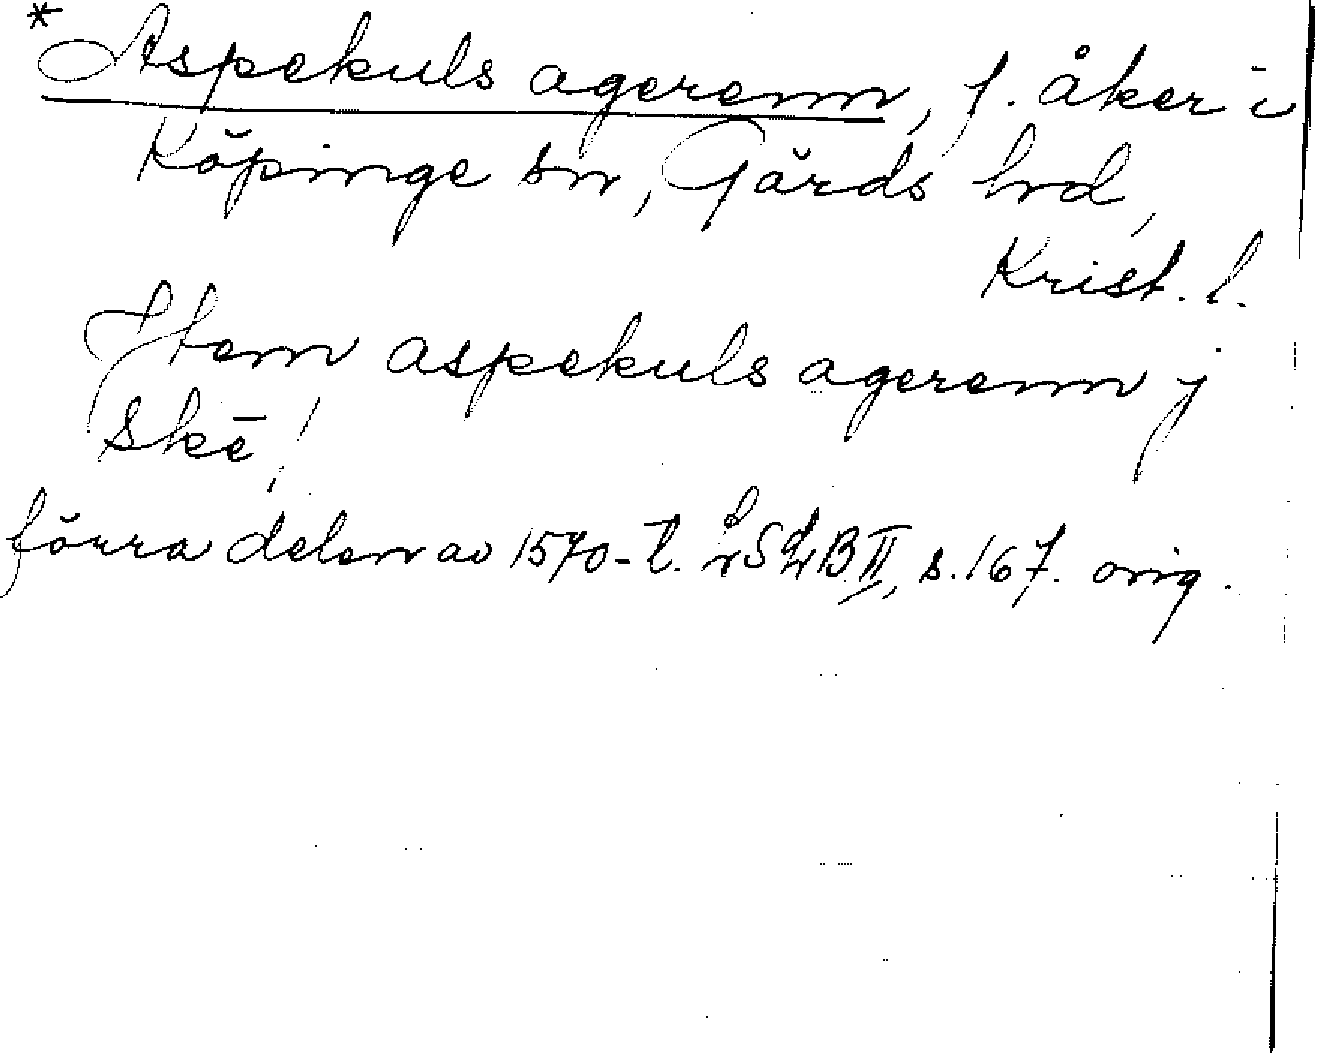 *Aspekuls agerenn, f. åker i
Köpinge sn, Gärds hrd,
Krist. l.
Item aspekuls agerenn j
Skē!
förra delen av 1570-t. LSJB II, s. 167. orig.